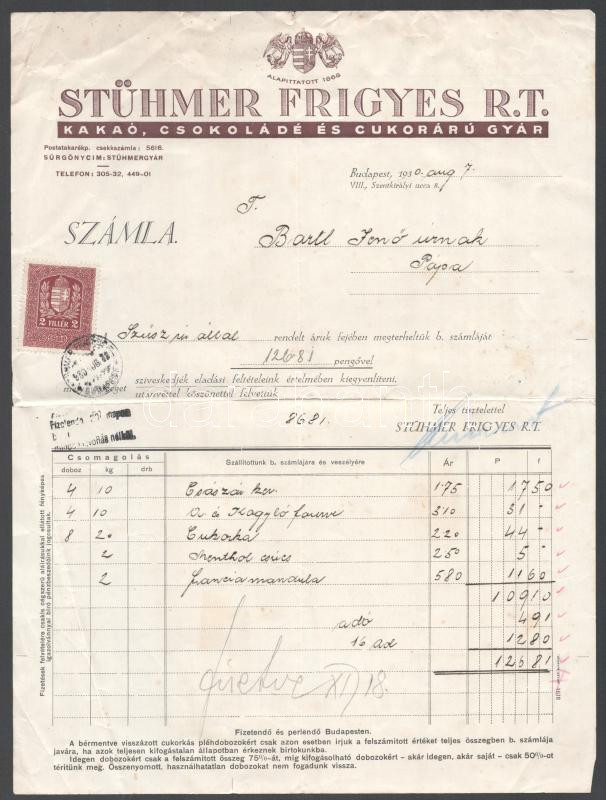 ALAPITTATOTT 1868
STÜHMER FRIGYES R.T.
KAKAÓ, CSOKOLÁDÉ ÉS CUKORÁRÚ GYÁR
Postatakarékp. csekkszámla: 5616.
SÜRGÖNYCIM: STÜHMERGYÁR
TELEFON: 305-32, 449-01
Budapest, 1930. aug 7.
VIII., Szentkirályi ucca 8.
T.
SZÁMLA.
Bartl Jenő úrnak
Pápa
2 FILLÉR 2
Szüsz úr által rendelt áruk fejében megterheltük b. számláját
126·81 pengővel
szíveskedjék eladási feltételeink értelmében kiegyenlíteni.
utánvéttel köszönettel felvettük
8681.
Teljes tisztelettel
STÜHMER FRIGYES R.T.
Csomagolás
doboz kg drb Szállítottunk b. számlájára és veszélyére Ár P f
4 10 Császár kev. 1·75 17 50
4 10 310 31 -
8 20 Cukorka 2 20 44 -
2 Menthol csücs 2 50 5 -
2 Francia mandula 5 80 11 60
109 10
adó 4 91
16 12 80
126 81
Fizetve XI/18.
Fizetések felvételére csakis cégszerű aláírásukkal ellátott fényképes
igazolvánnyal bíró pénzbeszedőink jogosultak.
Fizetendő és perlendő Budapesten.
A bérmentve visszázott cukorkás pléhdobozokért csak azon esetben irjuk a felszámitott értéket teljes összegben b. számlája
javára, ha azok teljesen kifogástalan állapotban érkeznek birtokunkba.
Idegen dobozokért csak a felszámitott összeg 75%-át, míg kifogásolható dobozokért – akár idegen, akár saját – csak 50%-ot
téritünk meg. Összenyomott, használhatatlan dobozokat nem fogadunk vissza.